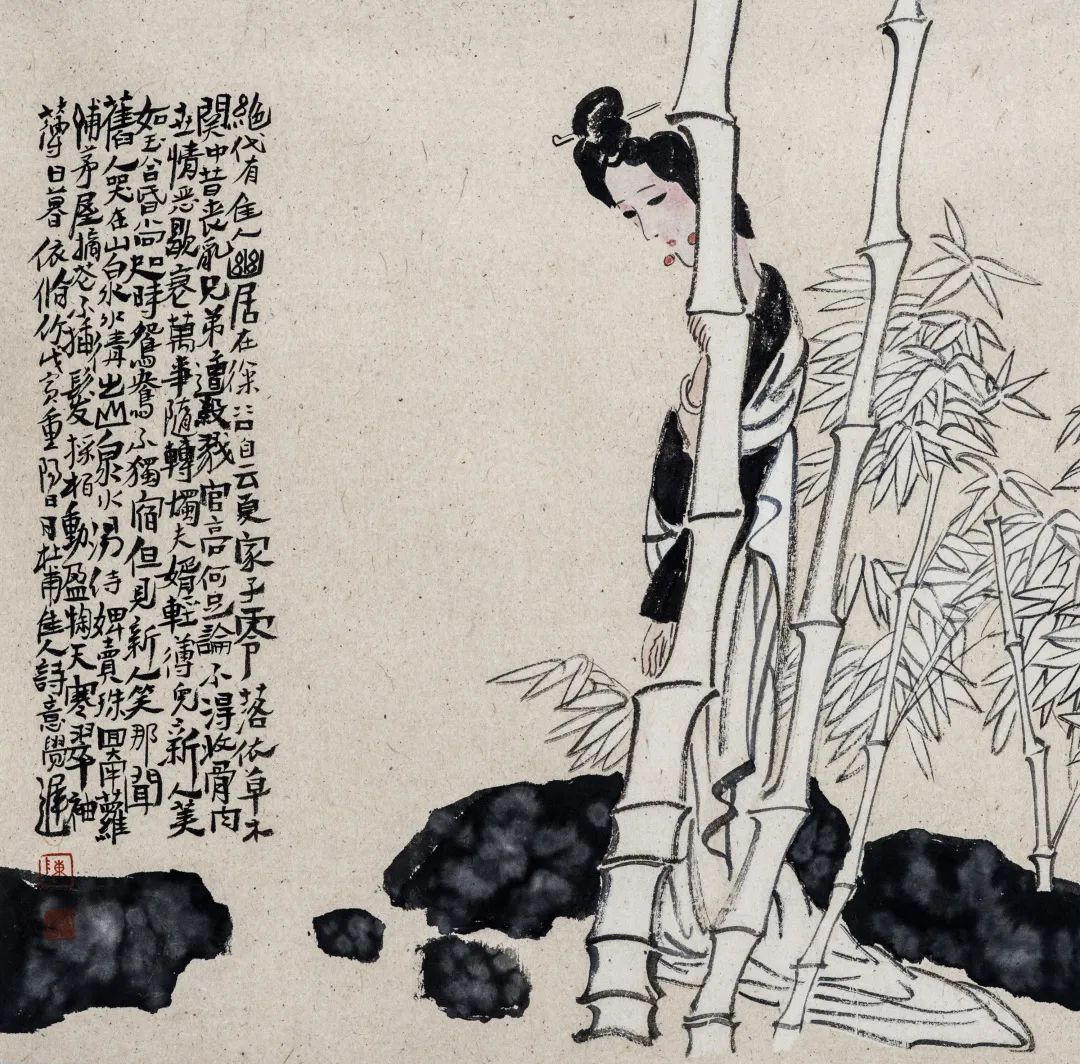 絕代有佳人幽居在深谷自云良家子零落依草木
關中昔喪亂兄弟遭殺戮官高何足論不得收骨肉
世情惡歇衰萬事隨轉燭夫婿輕薄兒新人美
如玉合昏尚知時鴛鴦不獨宿但見新人笑那聞
舊人哭在山泉水清出山泉水濁侍婢賣珠回牽蘿
補茅屋摘花不插髮採柏動盈掬天寒翠袖
薄日暮依脩竹戊寅重陽日杜甫佳人詩意覺遲
陳